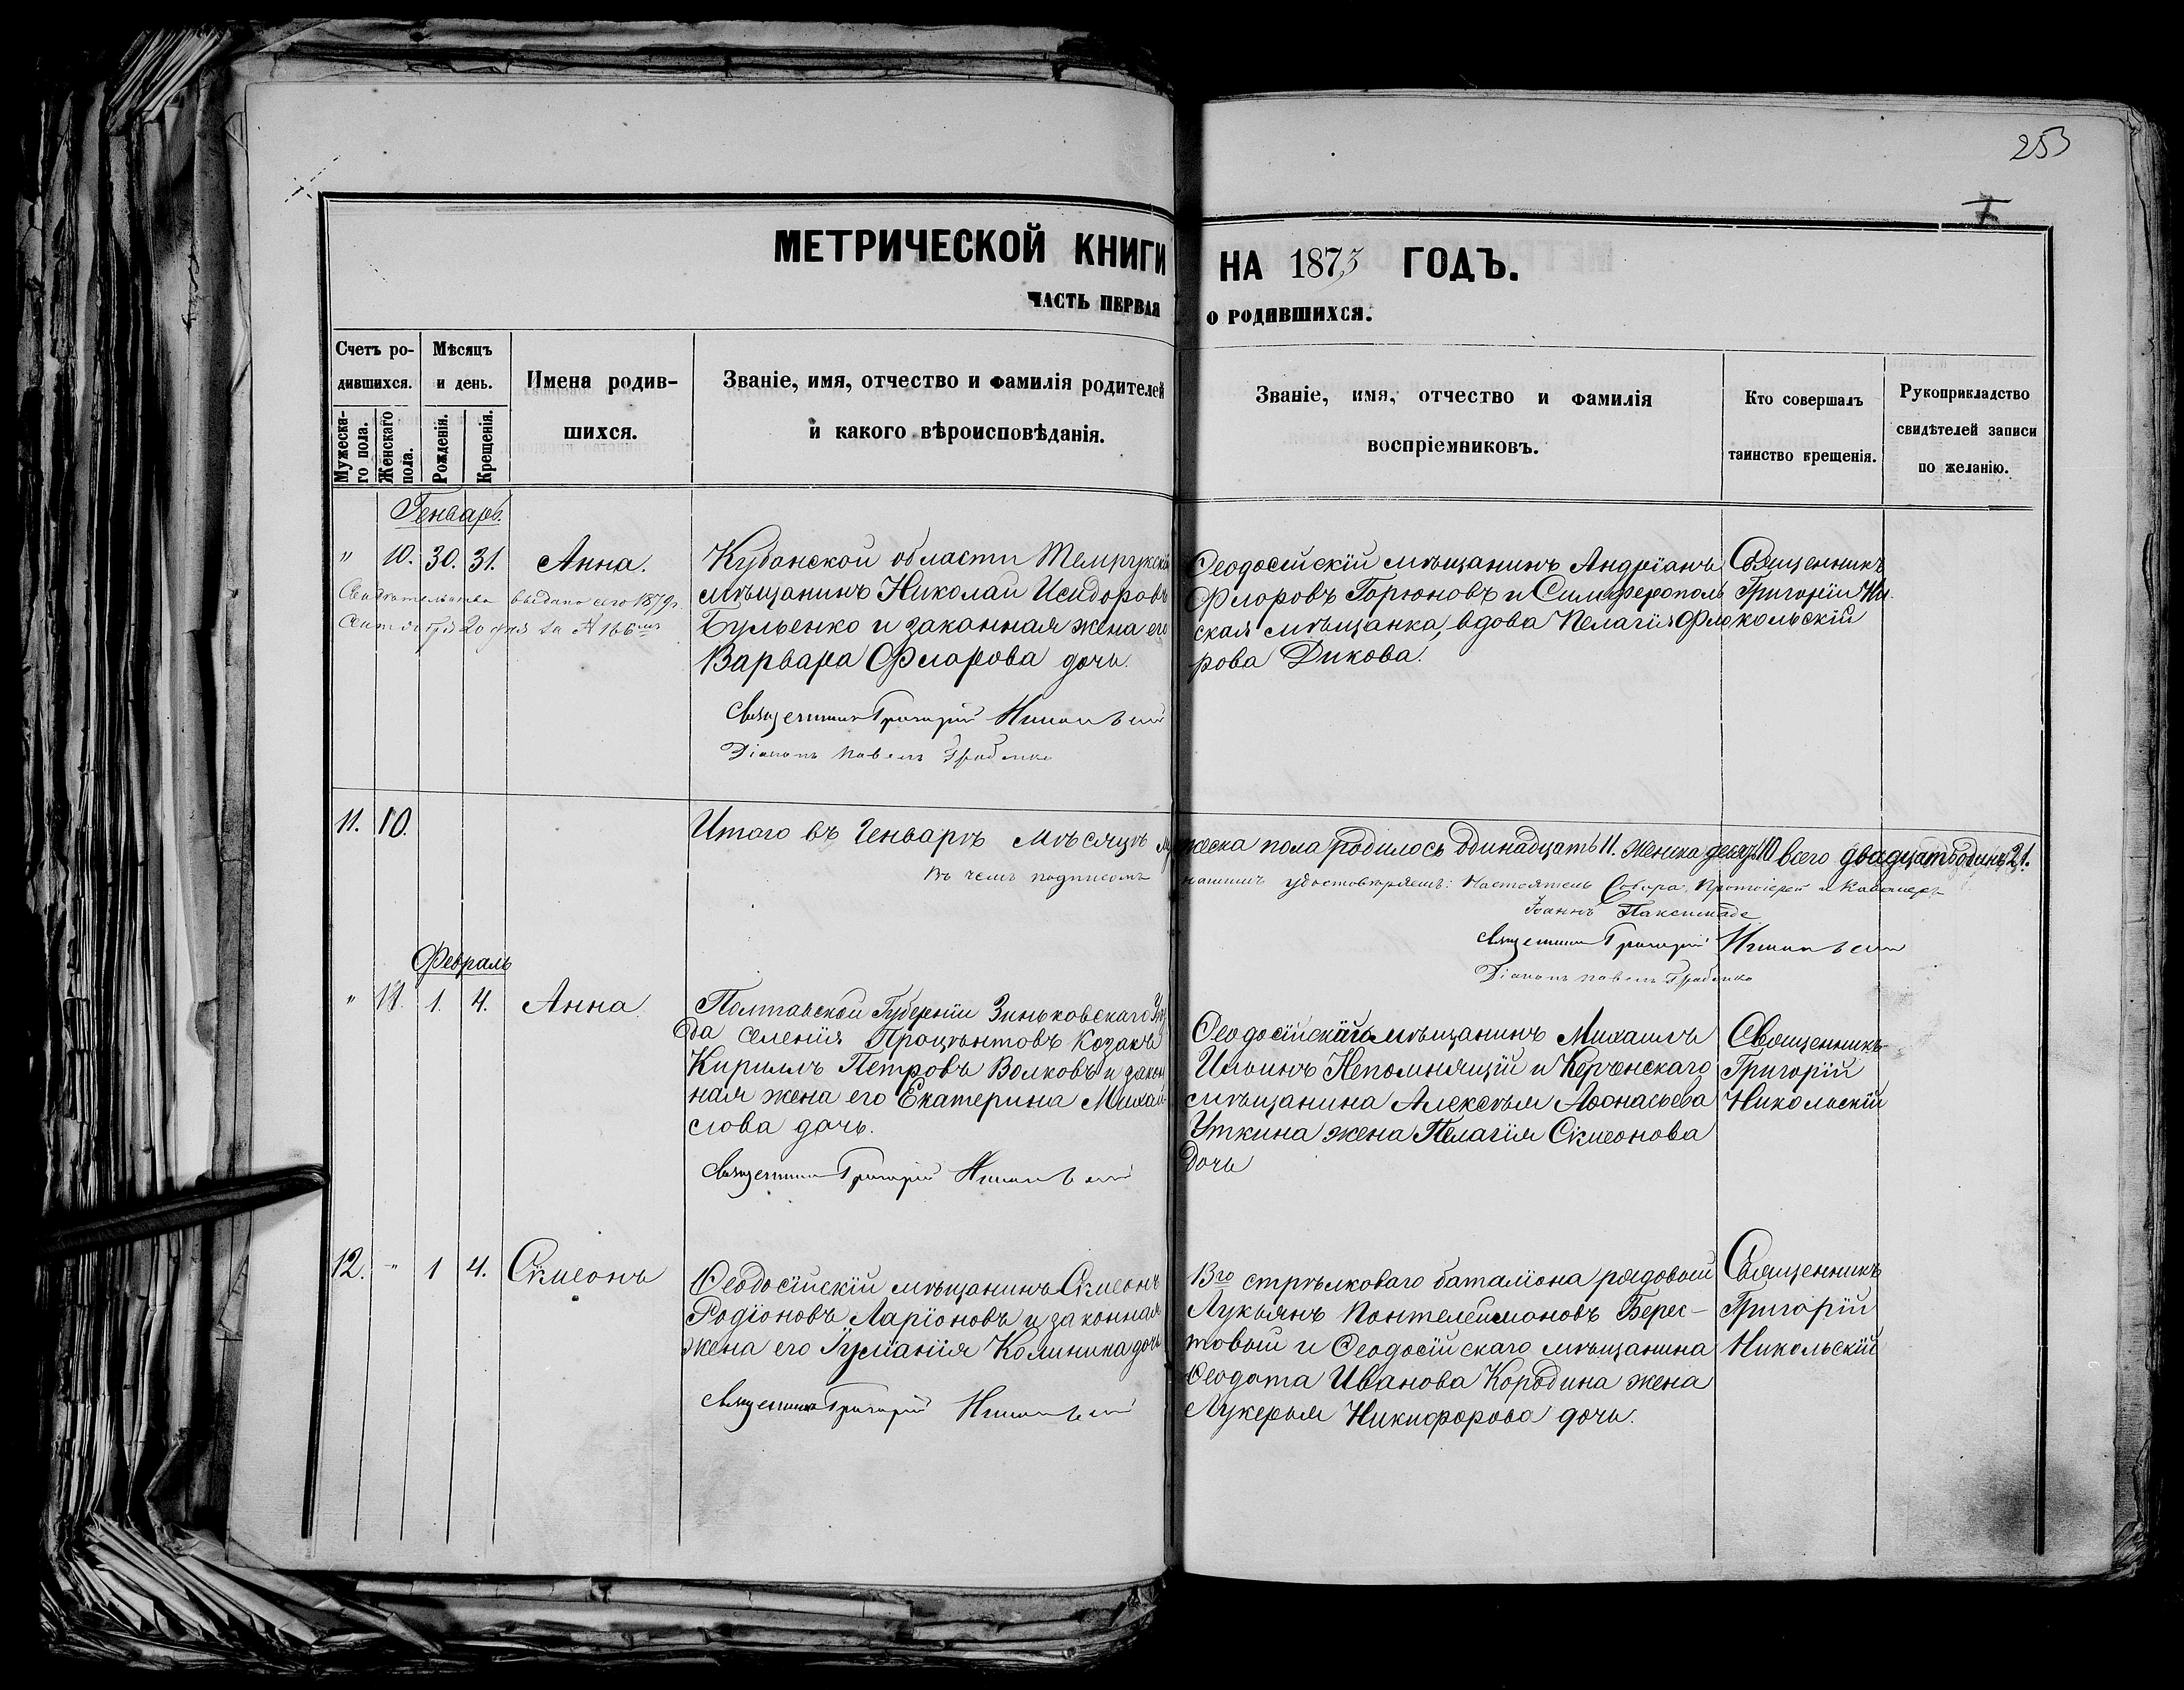 253
МЕТРИЧЕСКОЙ КНИГИ НА 1873 ГОДЪ.
ЧАСТЬ ПЕРВАЯ О РОДИВШИХСЯ.
Счетъ ро-
дившихся.
Мужеска-
го пола.
Женскаго
пола.
Мѣсяцъ
и день.
Рожденія.
Крещенія.
Имена родив-
шихся.
Званіе, имя, отчество и фамилія родителей
и какого вѣроисповѣданія.
Званіе, имя, отчество и фамилія
воспріемниковъ.
Кто совершалъ
таинство крещенія.
Рукоприкладство
свидѣтелей записи
по желанію.
Генварь.
" 10. 30. 31. Анна.
Свидѣтельство выдано сего 1879 г.
Сентября 20 дня за № 166
Кубанской области Темрукскій
мѣщанинъ Николай Исидоровъ
Бульенко и законная жена его
Варвара Флорова дочь.
Священникъ Григорій Никольскій
Діаконъ Павелъ
Ѳеодосійскій мѣщанинъ Андріанъ
Флоровъ Горюновъ и Симферополь
ская мѣщанка, вдова Пелагія Фло
рова Дикова.
Священникъ
Григорій Ни-
кольскій
11. 10.
Итого въ Генварѣ мѣсяцѣ мужеска пола родилось одинадцать 11. женска десять 10 всего двадцать одинъ 21.
Въ чемъ подписомъ нашимъ удостовѣряемъ: Настоятель Собора, Протоіерей и Кавалеръ
Іоаннъ Паксимаде
Священникъ Григорій Никольскій
Діаконъ Павелъ
Февраль
" 11. 1. 4. Анна
Полтавской Губерніи Зиньковскаго Уѣз
да селенія Процѣнтовъ Козакъ
Кириллъ Петровъ Волковъ и закон
ная жена его Екатерина Михай
лова дочь.
Священникъ Григорій Никольскій
Ѳеодосійскій мѣщанинъ Михаилъ
Ильинъ Непомнящій и Керченскаго
мѣщанина Алексѣя Аѳонасьева
Уткина жена Пелагія Сімеонова
дочь
Священникъ
Григорій
Никольскій
12. " 1 4. Сімеонъ
Ѳеодосійскій мѣщанинъ Сімеонъ
Родіоновъ Ларіоновъ и законная
жена его Іуліанія Колиника дочь
Священникъ Григорій Никольскій
13го стрѣлковаго баталіона рядовой
Лукьянъ Понтелеимоновъ Берес-
товой и Ѳеодосійскаго мѣщанина
Ѳеодота Иванова Кородина жена
Лукерья Никифорова дочь.
Священникъ
Григорій
Никольскій